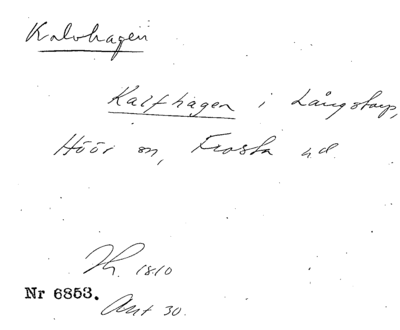 Kalvhagen
Kalfhagen i Långstorp,
Höör sn, Frosta hd
Th. 1810
Nr 6853.
Ant 30.